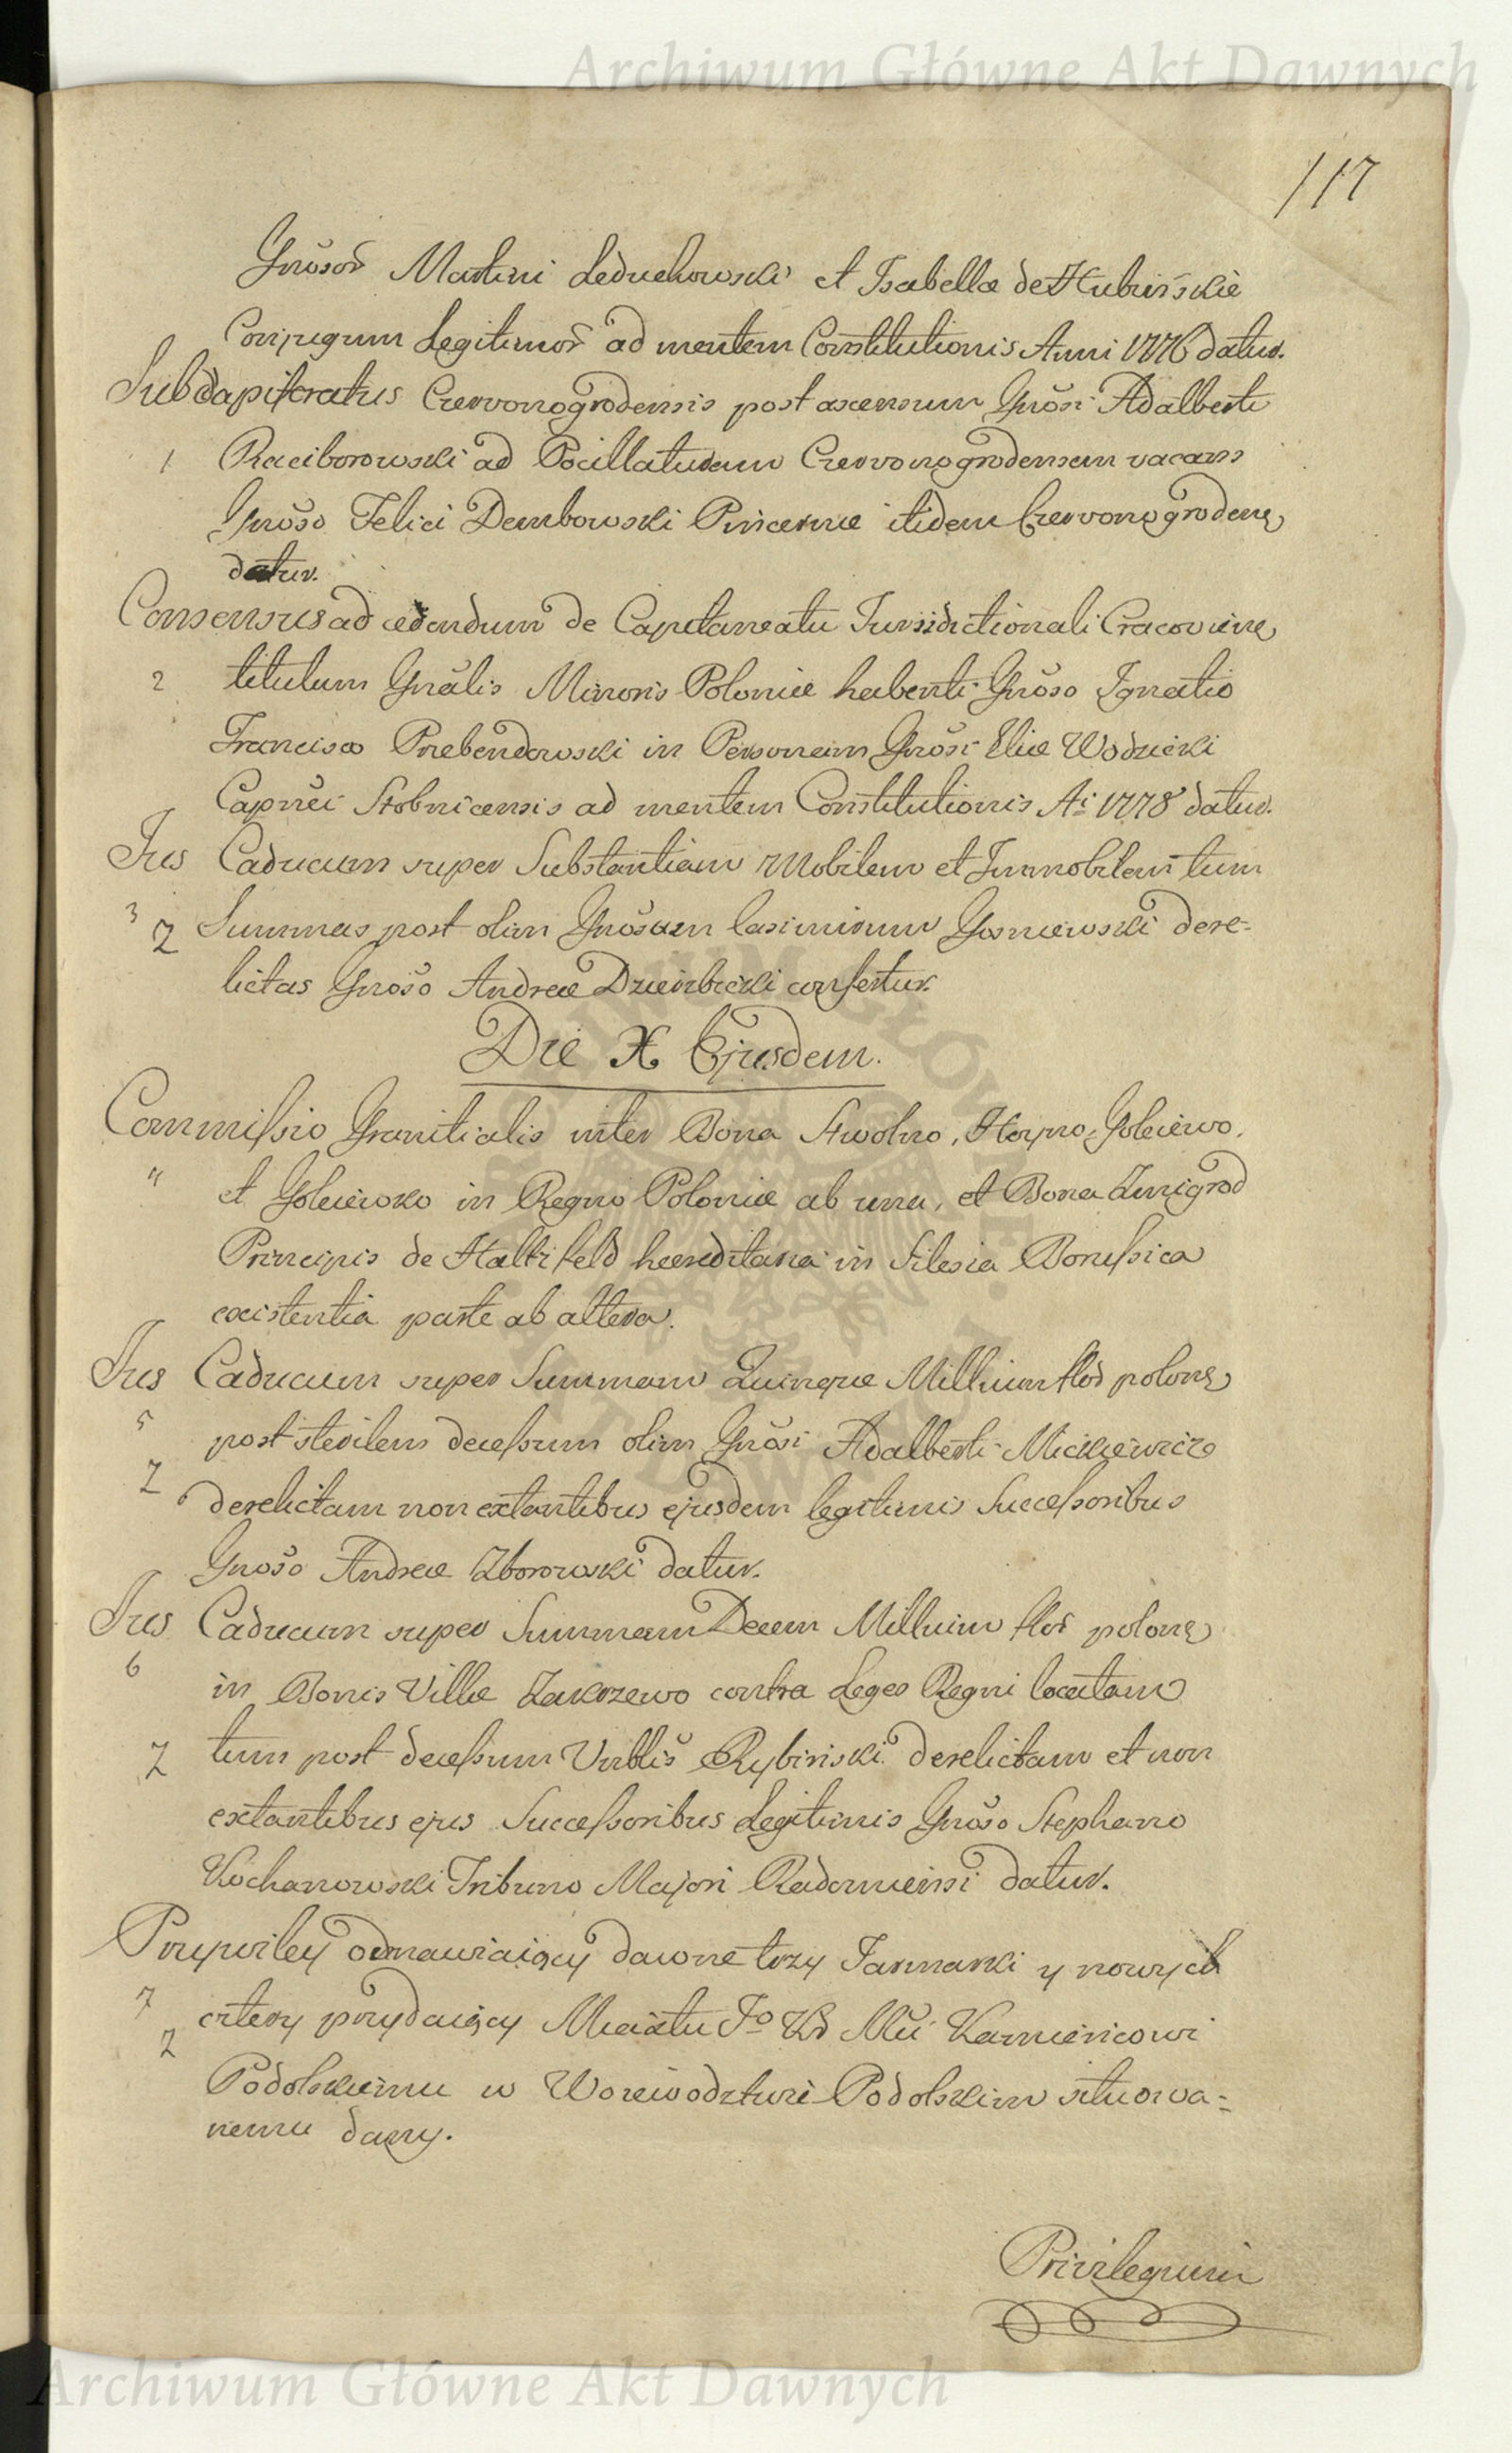 Archiwum Główne Akt Dawnych
117
Gnosor̃ Martini Leduchowski et Isabellæ de Hubińskie
Conjugum Legitimor̃ ad mentem Constitutionis Anni 1776 datur.
Subdapiferatus Czervonogrodensis post ascensum Gnõsi Adalberti
1 Raciborowski ad Pocillaturam Czervonogrodensem vacans
Gnõso Felici Dembowski Pincernæ itidem Czervonogrodens
datur.
Consensus ad cedendum de Capitaneatu Jurisdictionali Cracoviens
2 titulum Gnãlis Minoris Poloniæ habenti Gnõso Ignatio
Francisco Przebendowski in Personam Gnõsi Eliæ Wodzicki
Capnẽi Stobnicensis ad mentem Constitutionis Ai 1778 datur.
Jus Caducum super Substantiam Mobilem et Immobilem tum
3 Z Summas post olim Gnõsum Casimirum Gosniewski dere-
lictas Gnõso Andreæ Dzierzbicki confertur.
Die X Ejusdem.
Commissio Granitialis inter Bona Stwolno, Horpno, Goleiewo,
4 et Goleiewko in Regno Poloniæ ab una, et Bona Zmigrod
Principis de Hatzfeld hæreditaria in Silesia Borussica
existentia parte ab altera.
Jus Caducum super Summam Quinque Millium flor̃ polons
5 post sterilem decessum olim Gnõsi Adalberti Mickiewicz
Z derelictam non extantibus ejusdem legitimis Successoribus
Gnõso Andreæ Zborowski datur.
Jus Caducum super Summam Decem Millium flor̃ polons
6 in Bonis Villæ Zakrzewo contra Leges Regni locatam
Z tum post decessum Urblis Rybinski derelictam et non
extantibus ejus Successoribus Legitimis Gnõso Stephano
Kochanowski Tribuno Majori Radomiensi datur.
Przywiley odnawiaiący dawne trzy Jarmarki y nowych
7 cztery przydaiący Miastu Jo Kr Mci Kamieńcowi
Z Podolskiemu w Woiewodztwie Podolskim situowa=
nemu dany.
Privilegium
Archiwum Główne Akt Dawnych